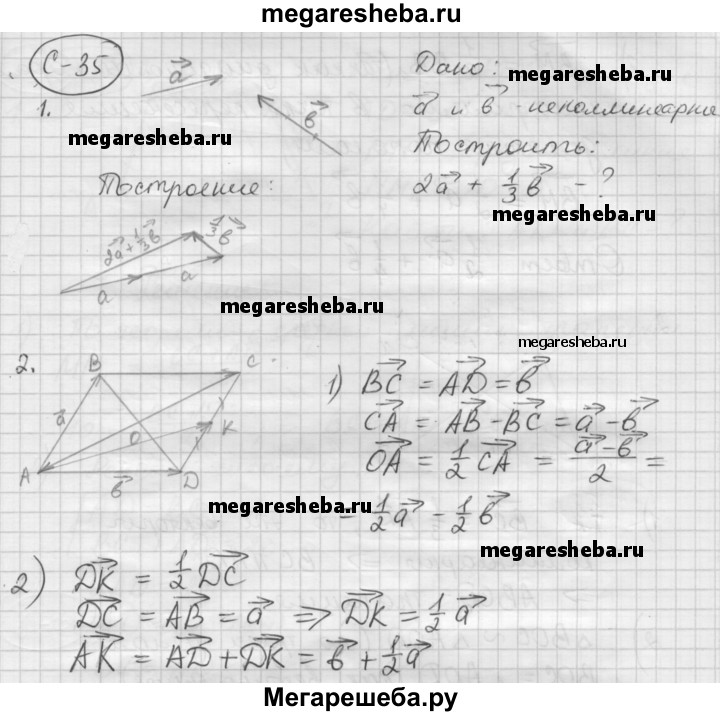 megaresheba.ru
С-35
1.
a⃗
b⃗
Дано:
megaresheba.ru
a⃗ и b⃗ - неколлинеарны
megaresheba.ru
Построить:
Построение:
2a⃗ + 1/3 b⃗ - ?
megaresheba.ru
2a⃗ + 1/3 b⃗
1/3 b⃗
a
a
megaresheba.ru
megaresheba.ru
2.
B
C
a⃗
O
K
A
b⃗
D
1) BC⃗ = AD⃗ = b⃗
CA⃗ = AB⃗ - BC⃗ = a⃗ - b⃗
OA⃗ = 1/2 CA⃗ = (a⃗ - b⃗)/2 =
megaresheba.ru
= 1/2 a⃗ - 1/2 b⃗
megaresheba.ru
2) DK⃗ = 1/2 DC⃗
DC⃗ = AB⃗ = a⃗ ⇒ DK⃗ = 1/2 a⃗
AK⃗ = AD⃗ + DK⃗ = b⃗ + 1/2 a⃗
Мегарешеба.ру